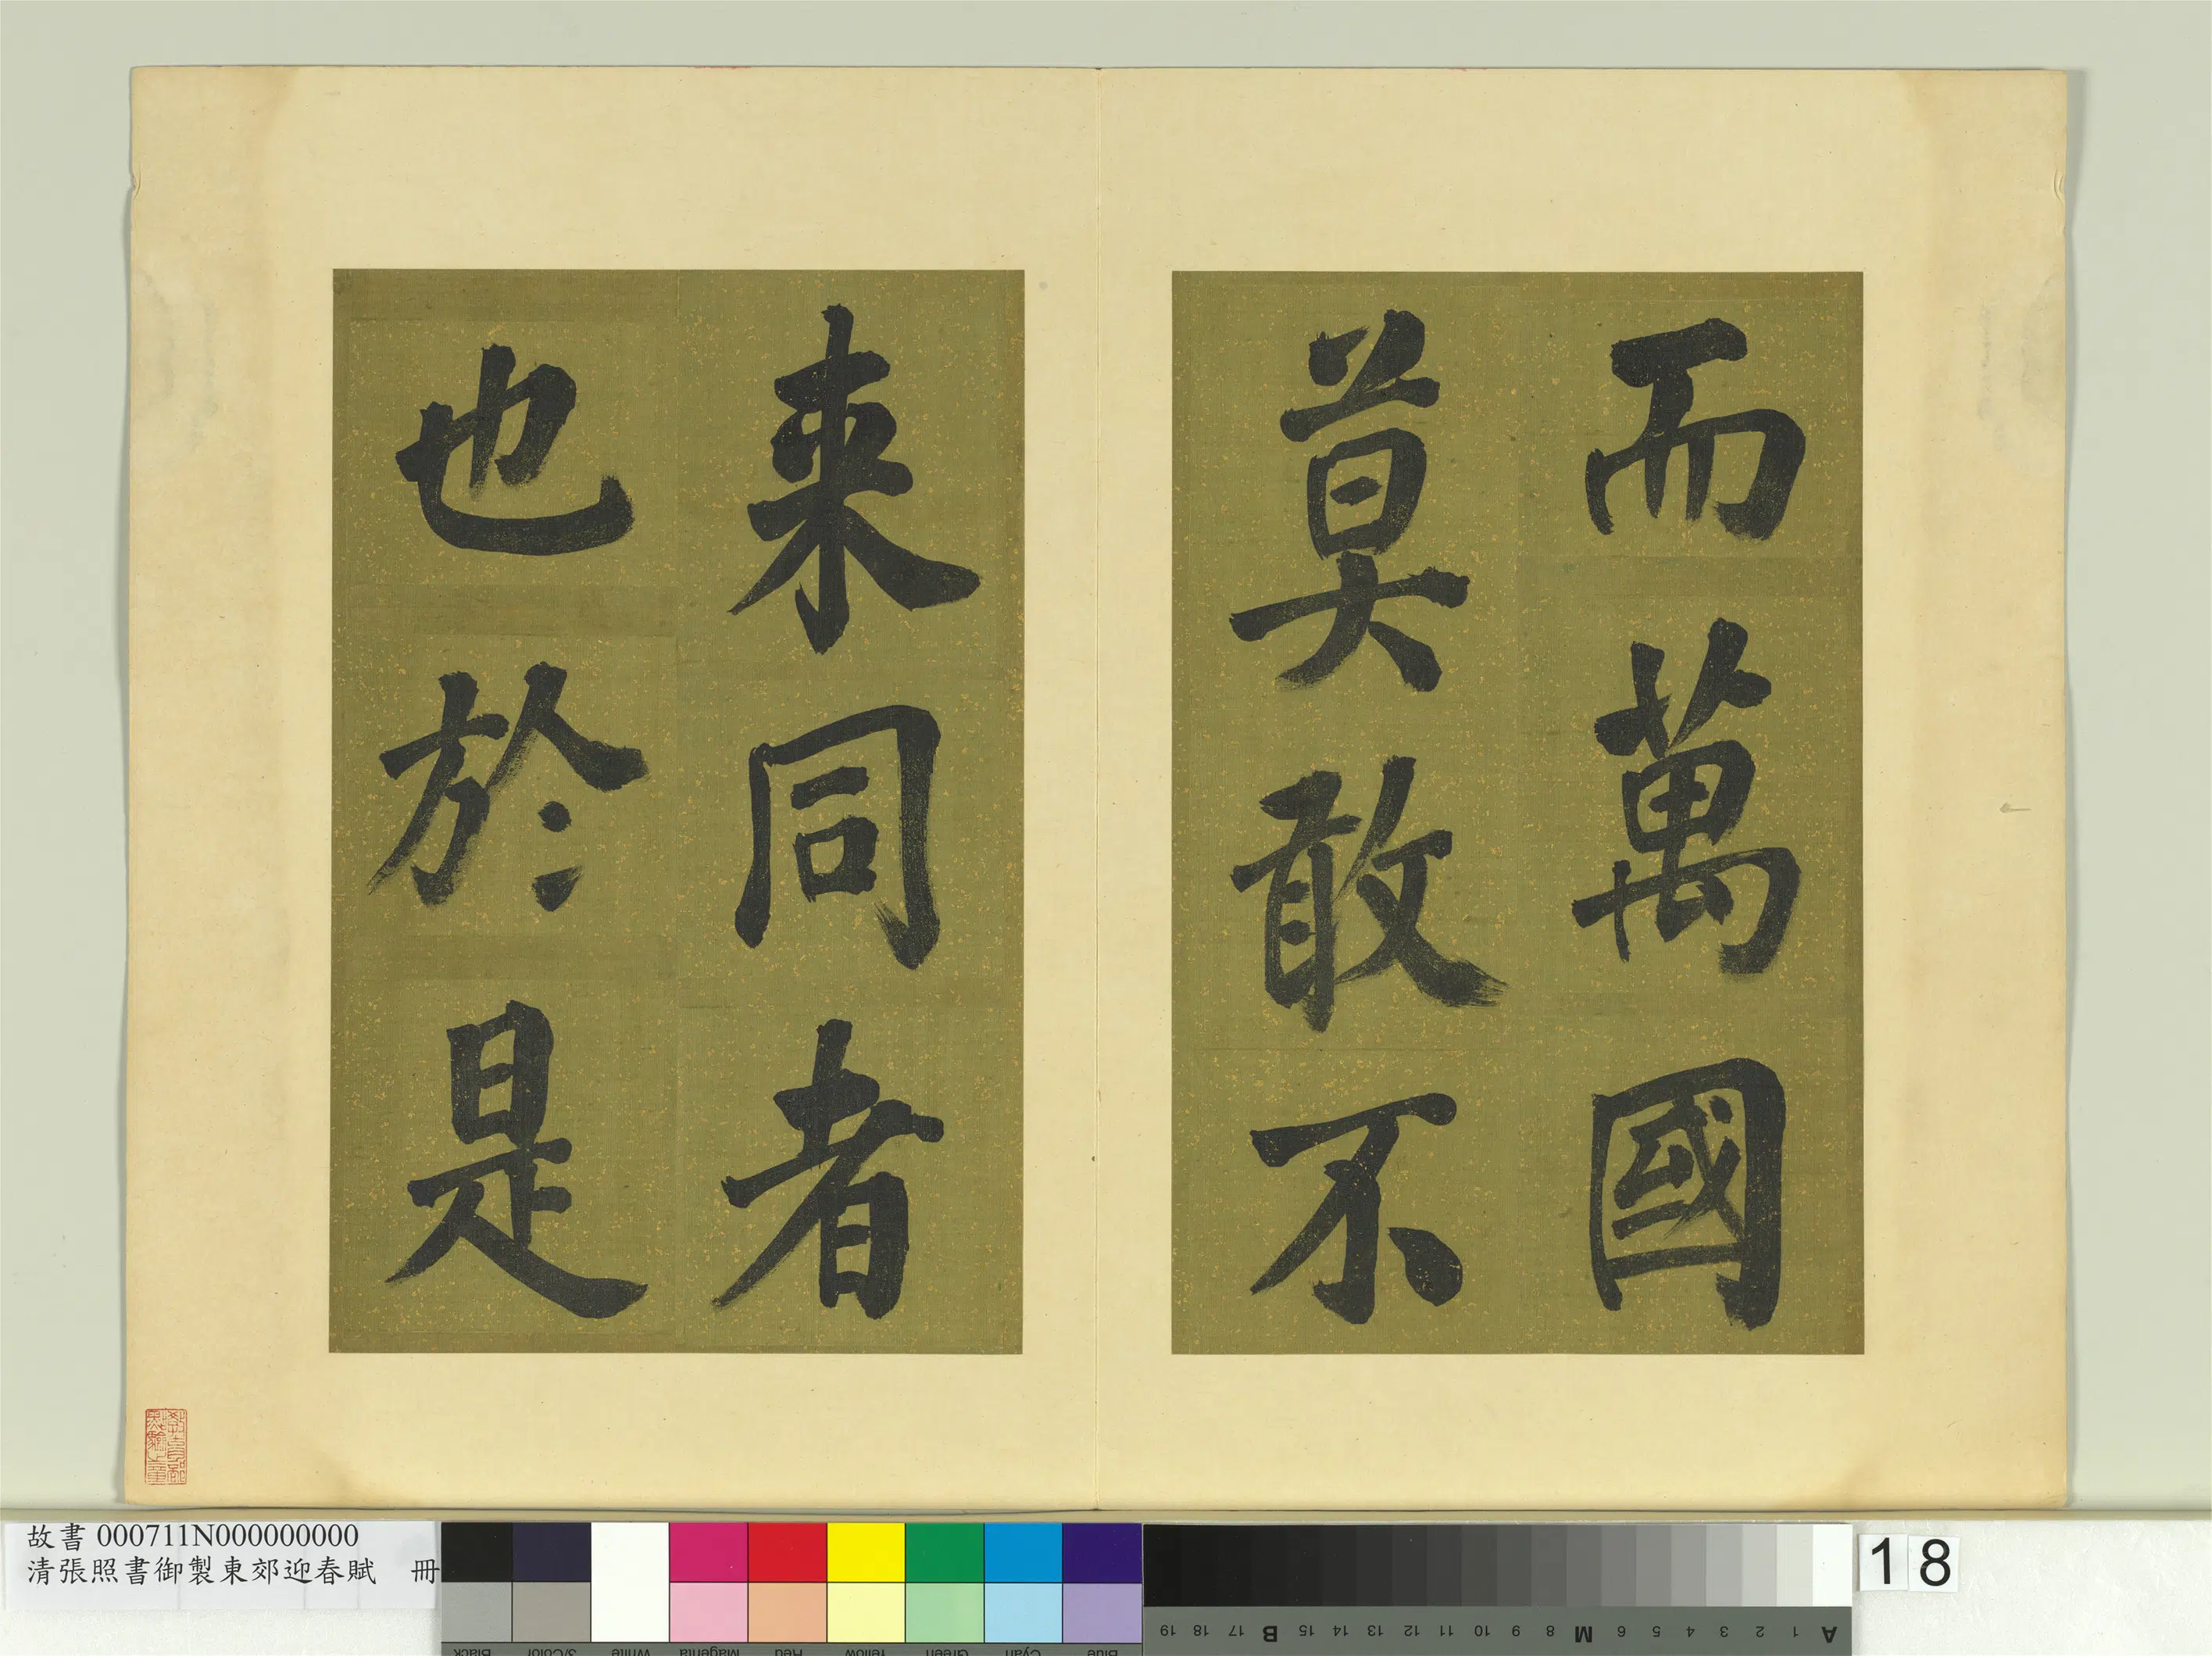 而萬國
莫敢不
来同者
也於是
故書 000711N000000000
清張照書御製東郊迎春賦 冊
18
Black
3/Color
White
Magenta
Red
Yellow
Green
Cyan
Blue
19 18 17 B 16 15 14 13 12 11 10 9 8 M 7 6 5 4 3 2 1 A